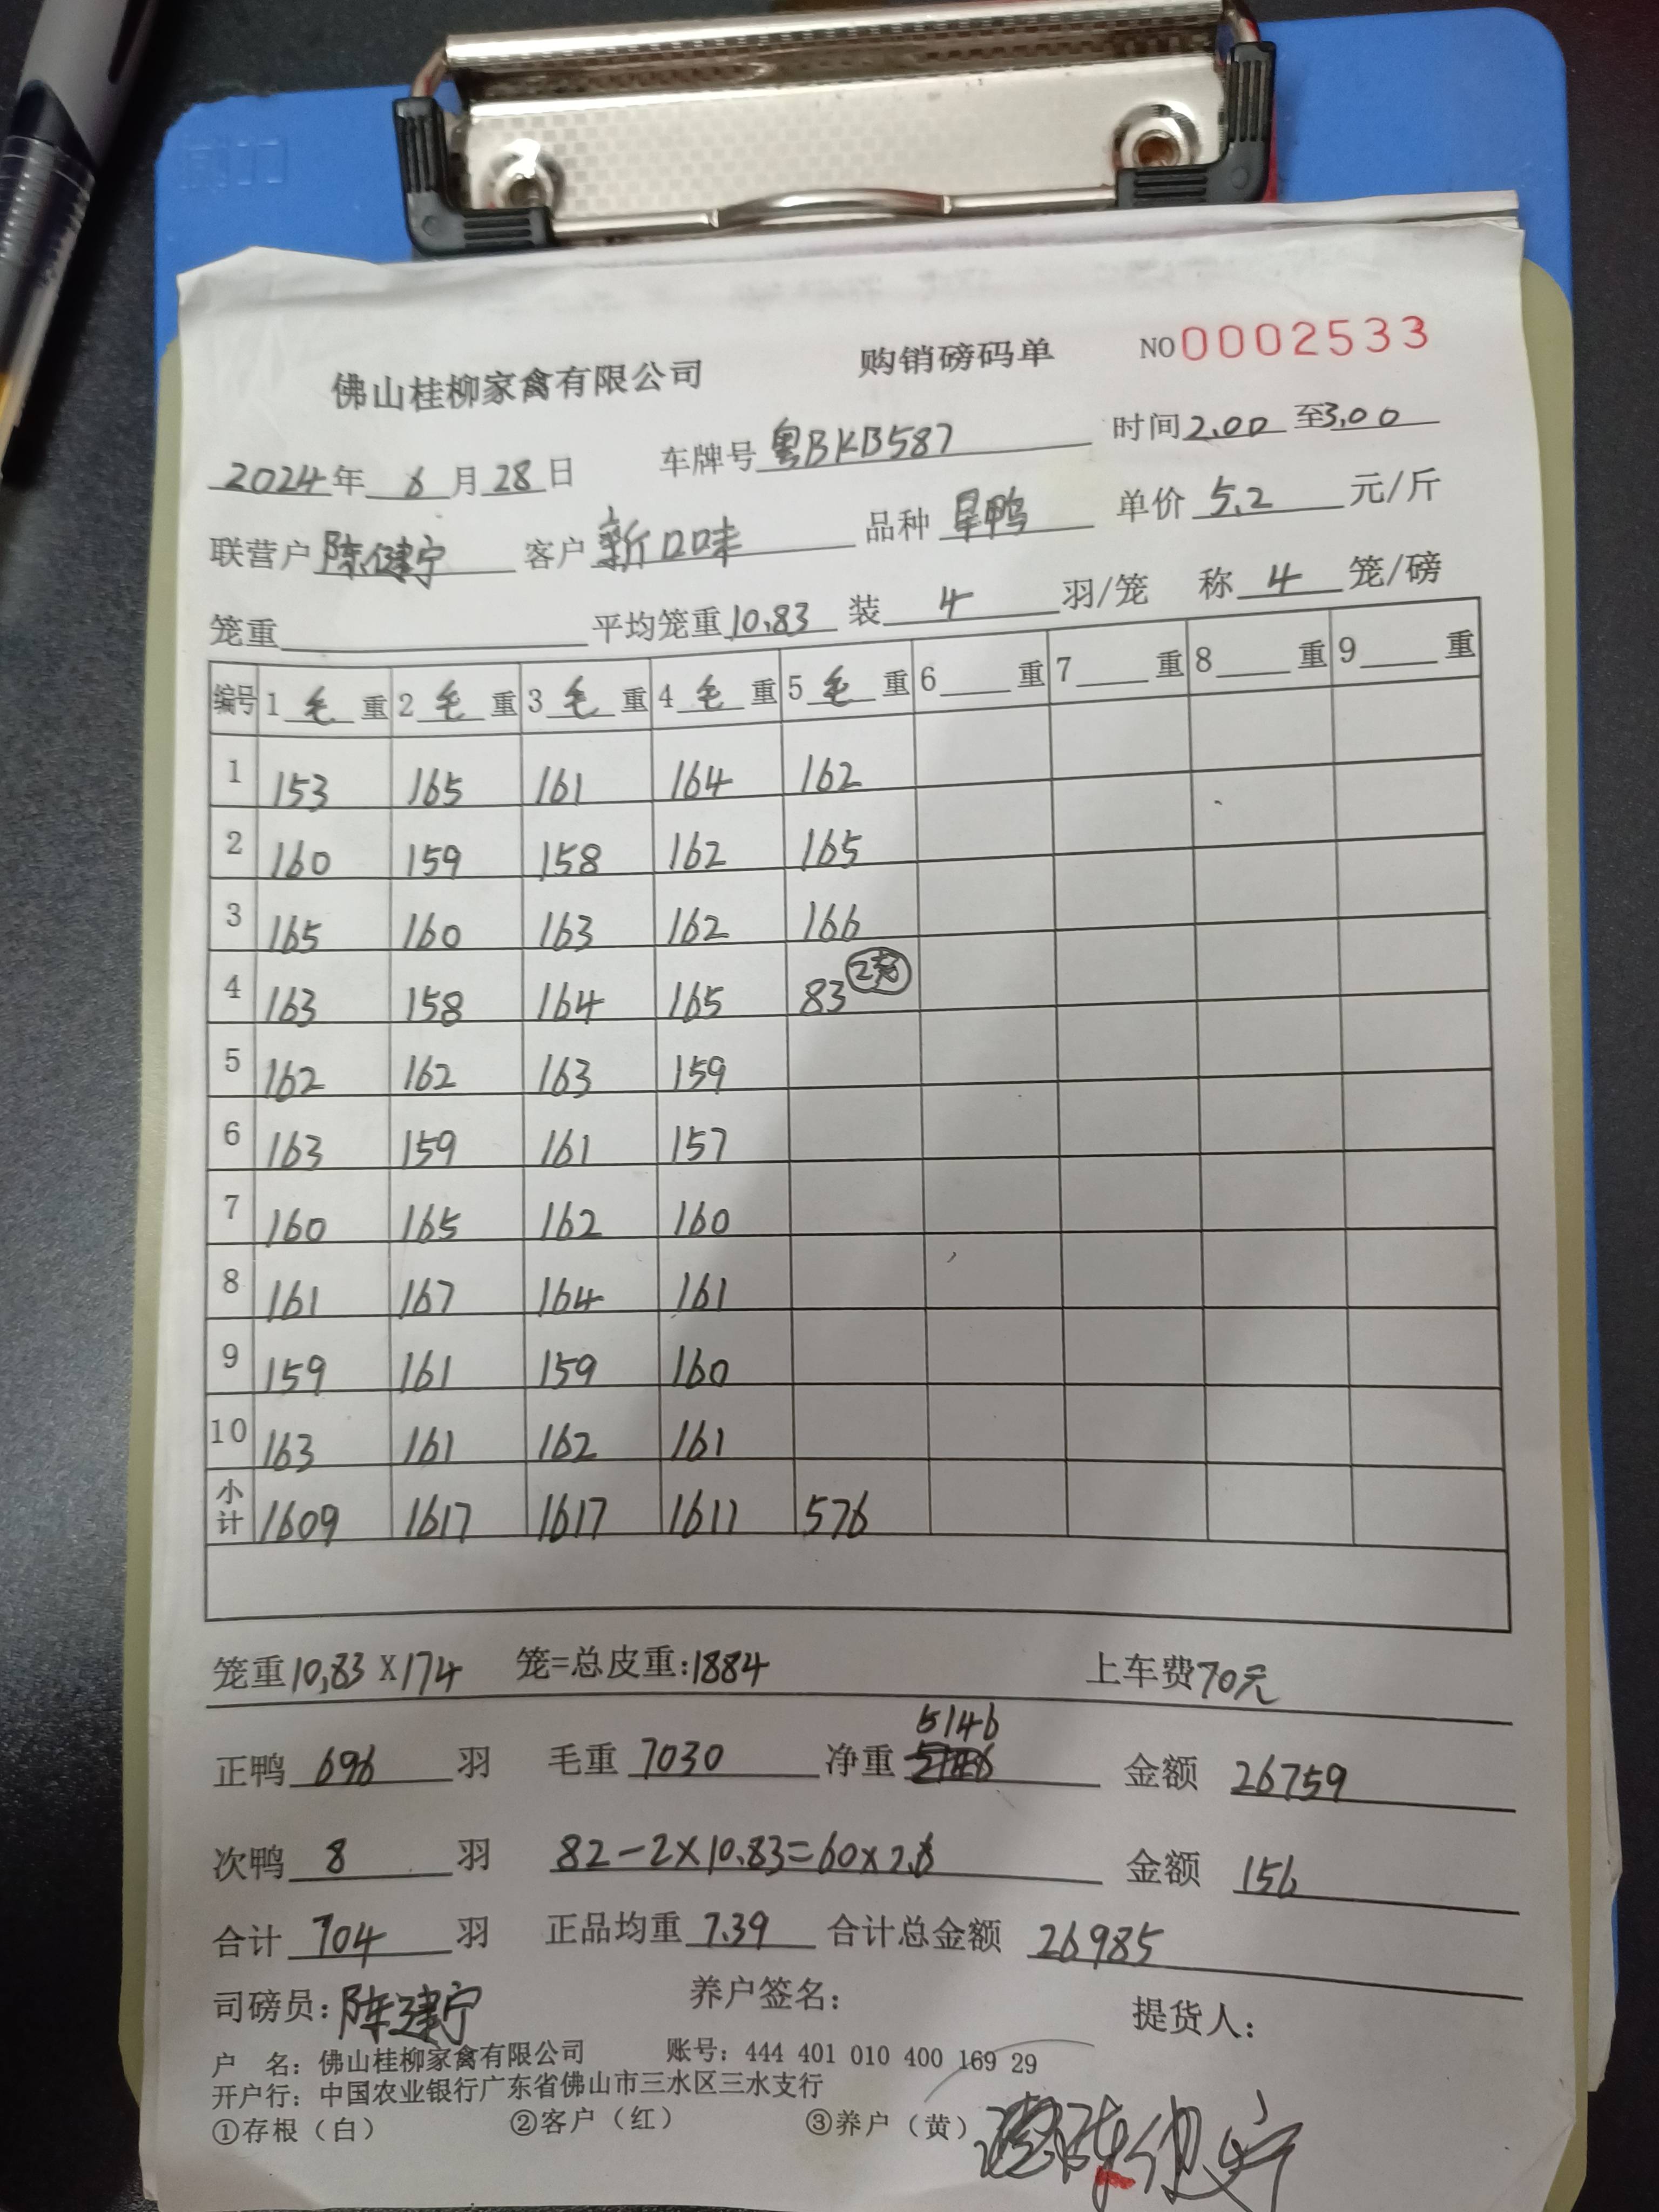 佛山桂柳家禽有限公司 购销磅码单 NO 0002533
2024年 6月28日 车牌号 粤BKB587 时间2.00 至3.00
联营户 陈健宁 客户 新口味 品种 旱鸭 单价 5.2 元/斤
笼重 平均笼重10.83 装 4 羽/笼 称 4 笼/磅
编号 1 毛 重 2 毛 重 3 毛 重 4 毛 重 5 毛 重 6 重 7 重 8 重 9 重
1 153 165 161 164 162
2 160 159 158 162 165
3 165 160 163 162 166
4 163 158 164 165 83
5 162 162 163 159
6 163 159 161 157
7 160 165 162 160
8 161 167 164 161
9 159 161 159 160
10 163 161 162 161
小计 1609 1617 1617 1611 576
笼重10.83 X174 笼=总皮重:1884 上车费70元
正鸭 696 羽 毛重 7030 净重 5146 金额 26759
次鸭 8 羽 82-2×10.83=60×2.6 金额 156
合计 704 羽 正品均重 7.39 合计总金额 26985
司磅员: 陈建宁 养户签名: 提货人:
户 名: 佛山桂柳家禽有限公司 账号: 444 401 010 400 169 29
开户行: 中国农业银行广东省佛山市三水区三水支行
①存根(白) ②客户(红) ③养户(黄)